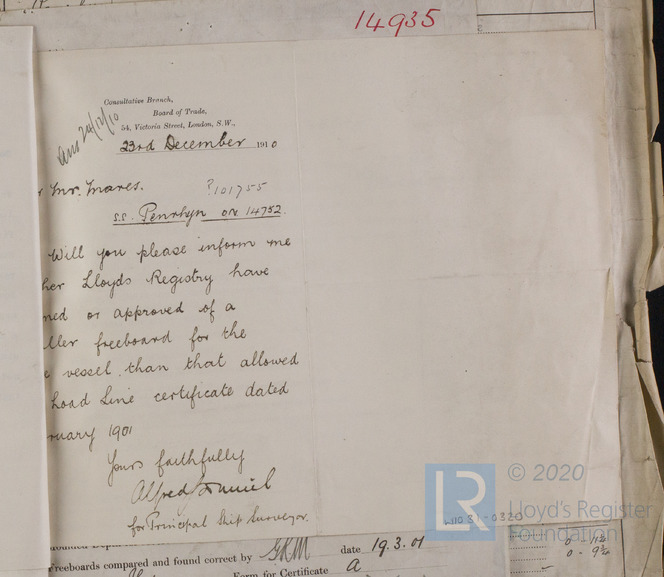 14935
Consultative Branch,
Board of Trade,
54, Victoria Street, London, S.W.,
ans 24/12/10
23rd December 1910
r Mr. Mares.
?101755
s.s. Penrhyn on 14752.
Will you please inform me
her Lloyds Registry have
ned or approved of a
ller freeboard for the
e vessel than that allowed
Load Line certificate dated
ruary 1901
Yours faithfully
Alfred
for Principal Ship Surveyor.
© 2020
LR
Lloyd's Register
Foundation
Freeboards compared and found correct by GRM date 19.3.01
Form for Certificate A